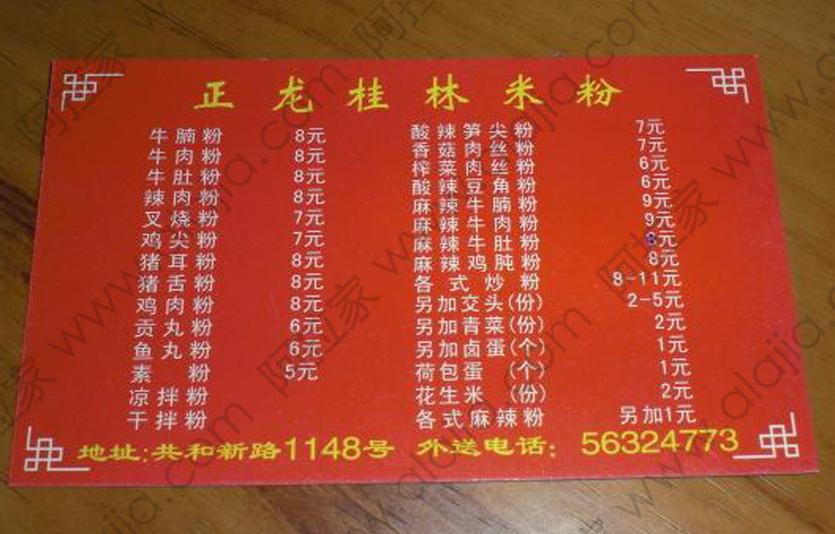 正龙桂林米粉
牛腩粉 8元
牛肉粉 8元
牛肚粉 8元
辣肉粉 8元
叉烧粉 7元
鸡尖粉 7元
猪耳粉 8元
猪舌粉 8元
鸡肉粉 8元
贡丸粉 6元
鱼丸粉 6元
素粉 5元
凉拌粉
干拌粉
酸辣笋尖粉 7元
香菇肉丝粉 7元
榨菜肉丝粉 6元
酸辣豆角粉 6元
麻辣牛腩粉 9元
麻辣牛肉粉 9元
麻辣牛肚粉 8元
麻辣鸡肫粉 8元
各式炒粉 8-11元
另加交头(份) 2-5元
另加青菜(份) 2元
另加卤蛋(个) 1元
荷包蛋(个) 1元
花生米(份) 2元
各式麻辣粉 另加1元
地址:共和新路1148号 外送电话: 56324773
阿拉家 www.alajia.com